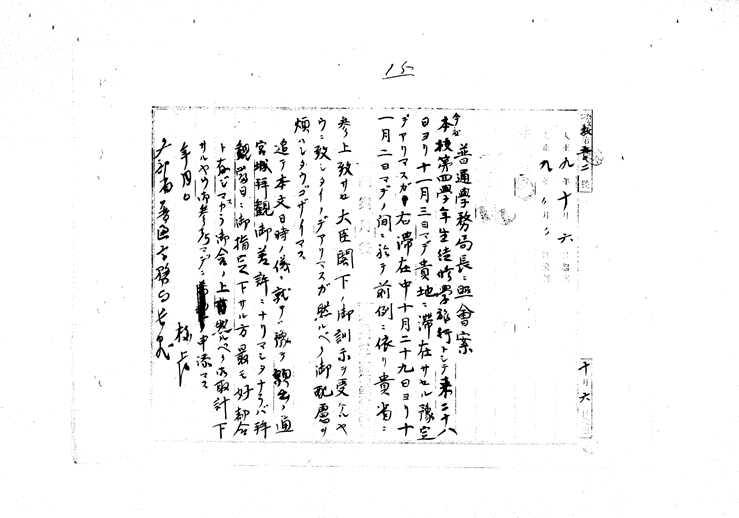 15
大正九年十月六
九年 月
普通學務局長ニ照會案
今般
本校第四學年生徒修學旅行トシテ来二十八
日ヨリ十一月三日マデ貴地ニ滞在サセル豫定
デアリマスガ右滞在中十月二十九日ヨリ十
一月二日マデノ間ニ於テ前例ニ依リ貴省ニ
参上致サセ大臣閣下ノ御訓示ヲ受ケルヤ
ウニ致シタイノデアリマスガ然ルベク御配慮ヲ
煩ハシタウゴザイマス
追テ本文日時ノ儀ニ就テハ豫テ願出ノ通
宮城拝観御差許ニナリマシタナラバ拝
観當日ニ御指定下サル方最モ好都合
ト存ジマスカラ御含ノ上然ルベク御取計下
サルヤウ御参考マデニ申添マス
年月日 校長
文部省普通學務局長宛
十月六